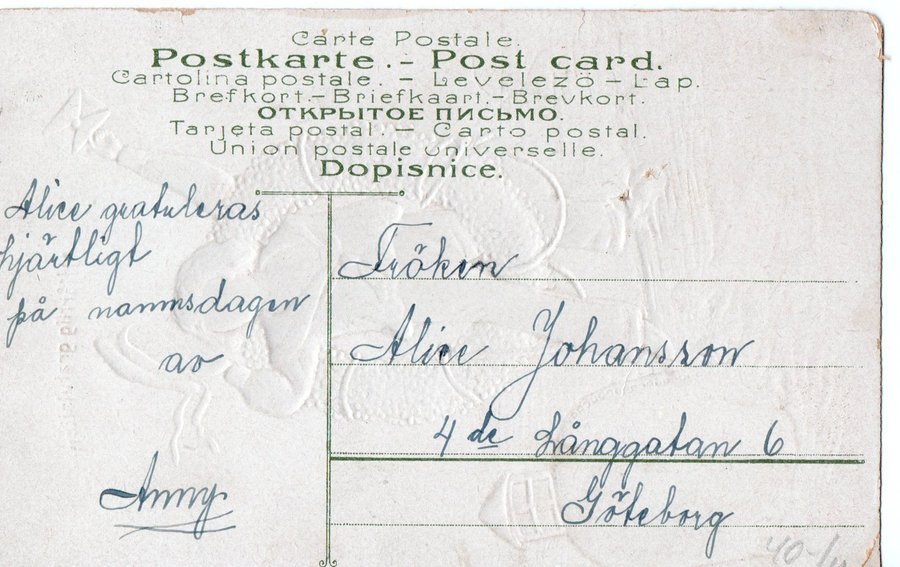 Carte Postale.
Postkarte. – Post card.
Cartolina postale. – Levelezö – Lap.
Brefkort.– Briefkaart.– Brevkort.
ОТКРЫТОЕ ПИСЬМО.
Tarjeta postal. – Carto postal.
Union postale universelle.
Dopisnice.
Alice gratuleras
hjärtligt
på namnsdagen
av
Anny
Fröken
Alice Johansson
4de Långgatan 6
Göteborg